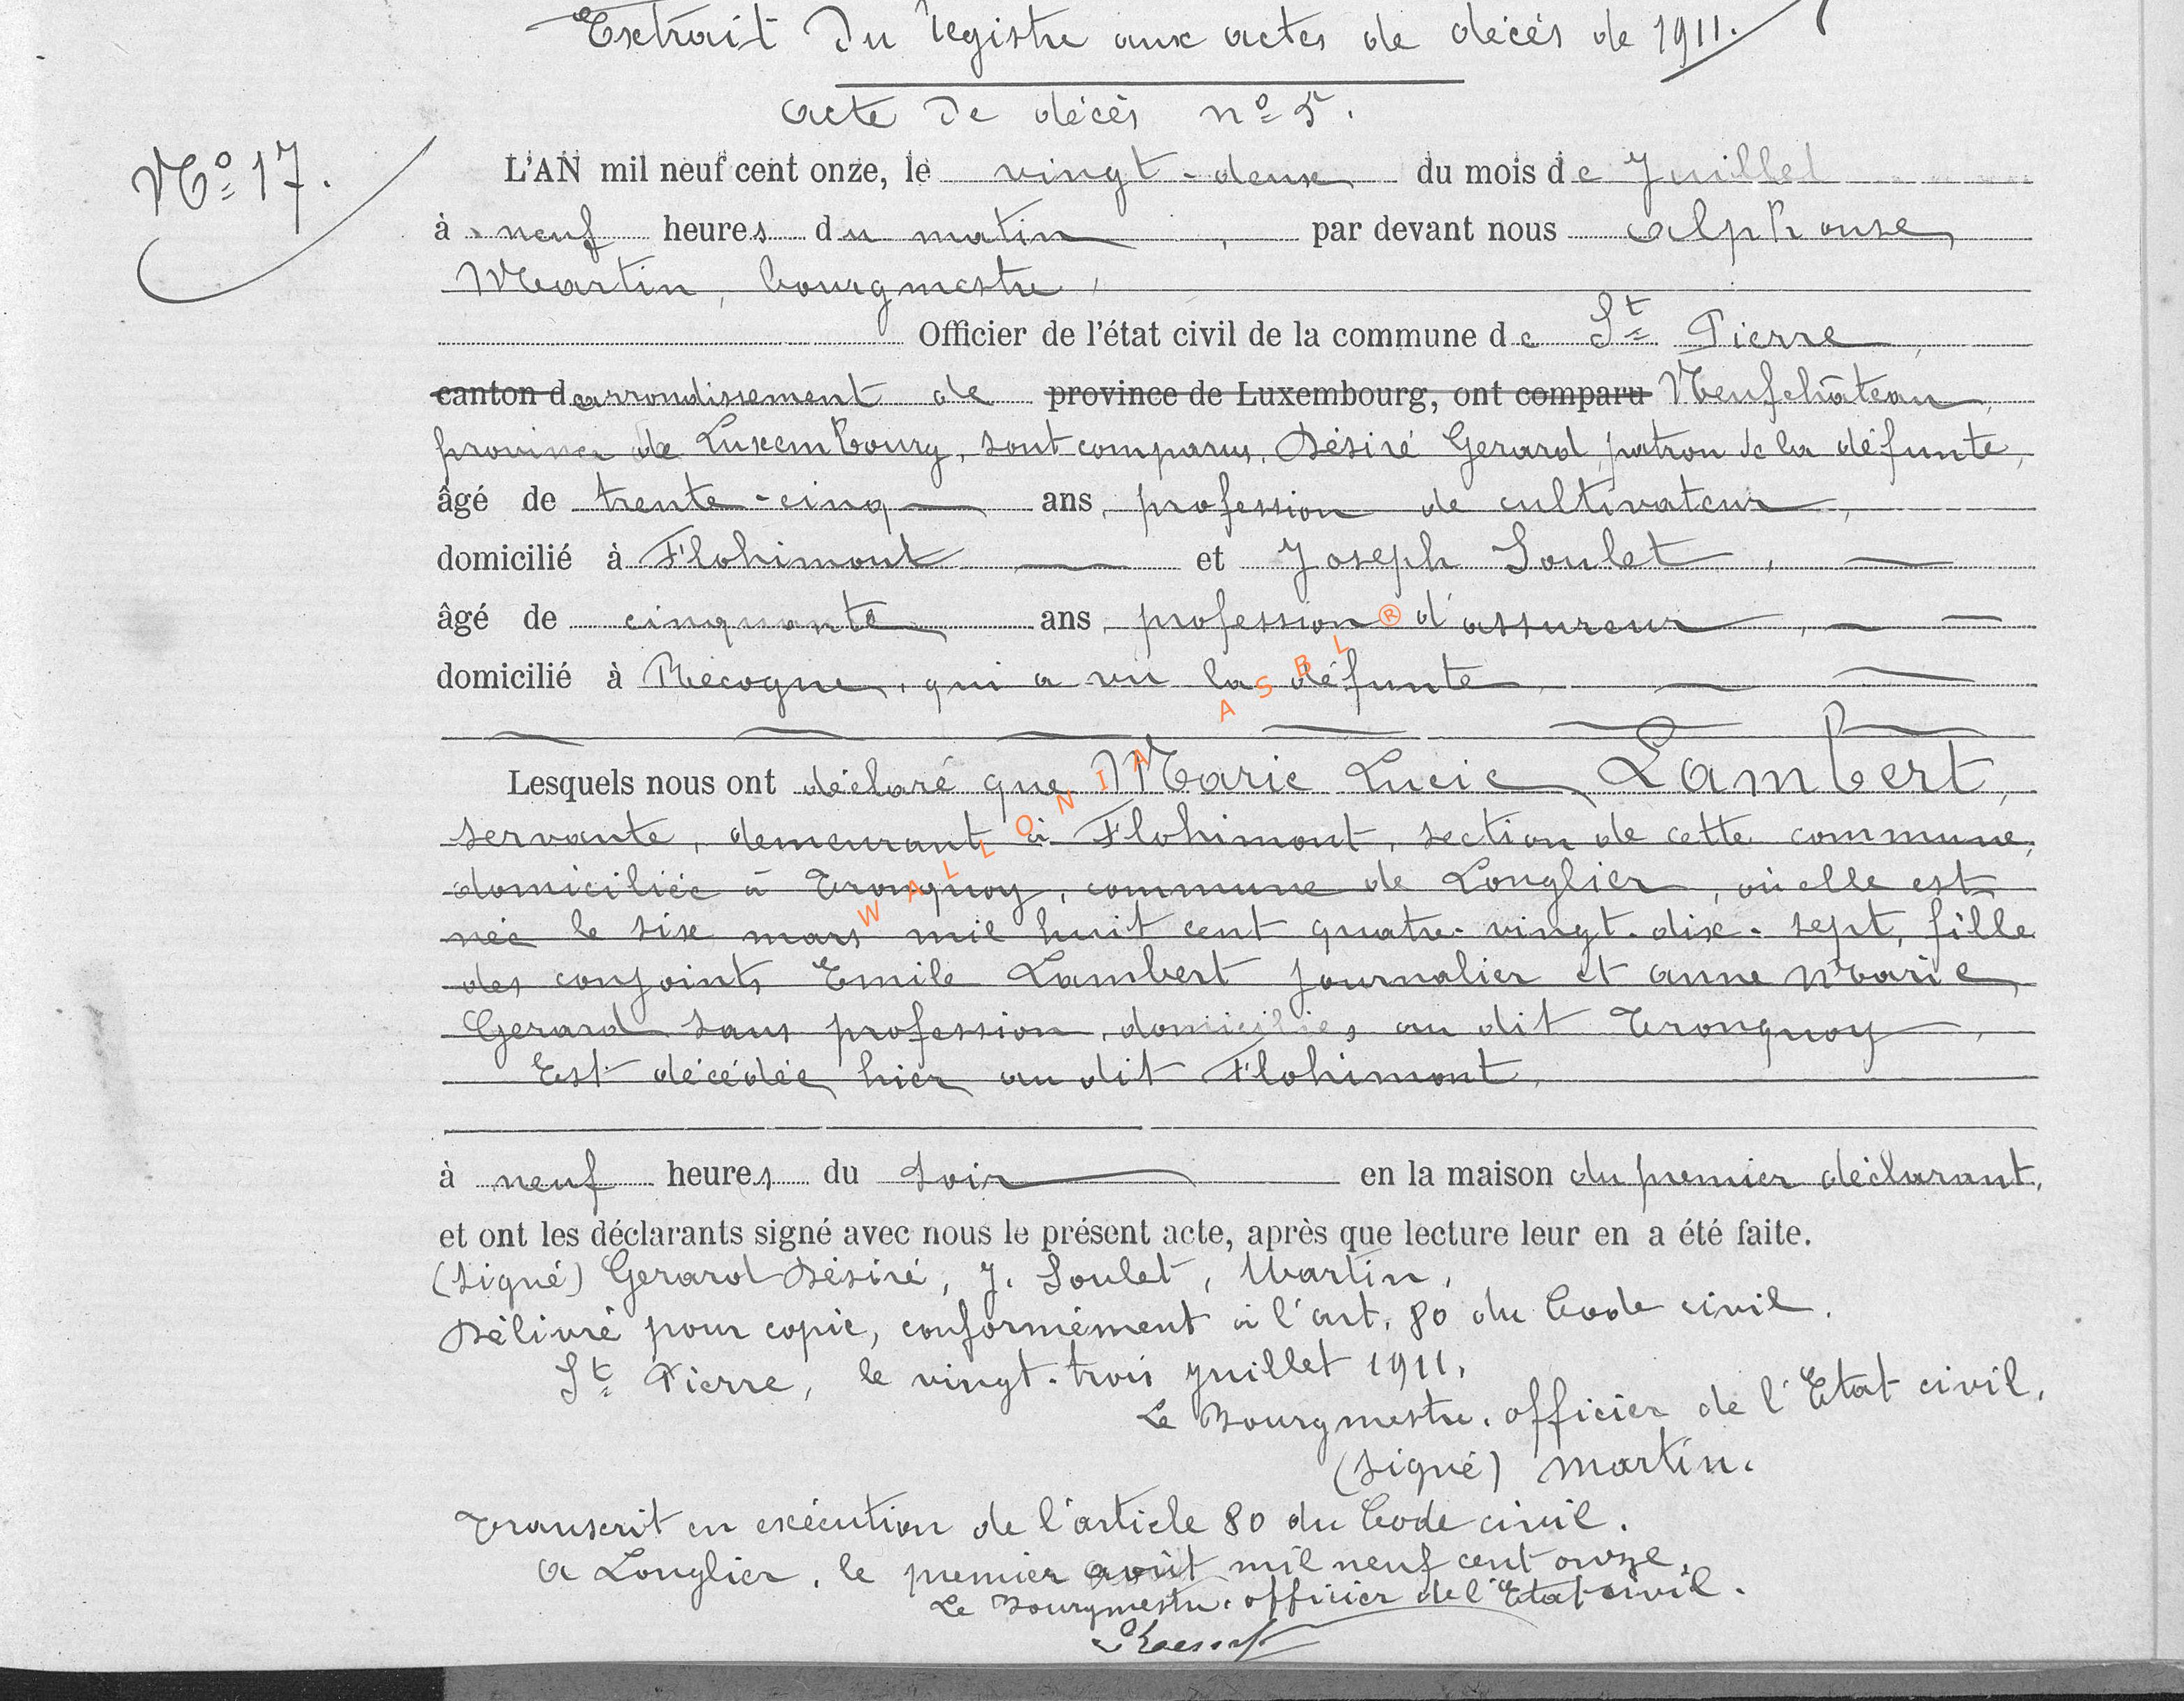 Extrait du registre aux actes de décès de 1911.
Acte de décès n° 5.
N° 17.
L'AN mil neuf cent onze, le vingt-deux du mois de Juillet
à neuf heures du matin, par devant nous Alphonse
Martin, bourgmestre,
Officier de l'état civil de la commune de St Pierre,
canton d arrondissement de province de Luxembourg, ont comparu Neufchâteau,
province de Luxembourg, sont comparus, Désiré Gerard, patron de la défunte,
âgé de trente-cinq ans, profession de cultivateur,
domicilié à Flohimont et Joseph Soulet,
âgé de cinquante ans, profession d'assureur,
domicilié à Recogne, qui a vu la défunte
Lesquels nous ont déclaré que Marie Lucie Lambert,
servante, demeurant à Flohimont, section de cette commune,
domiciliée à Tronquoy, commune de Longlier, où elle est
née le six mars mil huit cent quatre-vingt-dix-sept, fille
des conjoints Emile Lambert journalier et Anne Marie
Gerard sans profession, domiciliés au dit Tronquoy,
Est décédée hier au dit Flohimont,
à neuf heures du soir en la maison du premier déclarant,
et ont les déclarants signé avec nous le présent acte, après que lecture leur en a été faite.
(signé) Gerard Désiré, J. Soulet, Martin,
Délivré pour copie, conformément à l'art. 80 du Code civil.
St Pierre, le vingt-trois juillet 1911,
Le Bourgmestre, officier de l'Etat civil,
(signé) Martin.
Transcrit en exécution de l'article 80 du Code civil.
A Longlier, le premier août mil neuf cent onze,
Le Bourgmestre, officier de l'Etat civil.
WALLONIA ASBL®